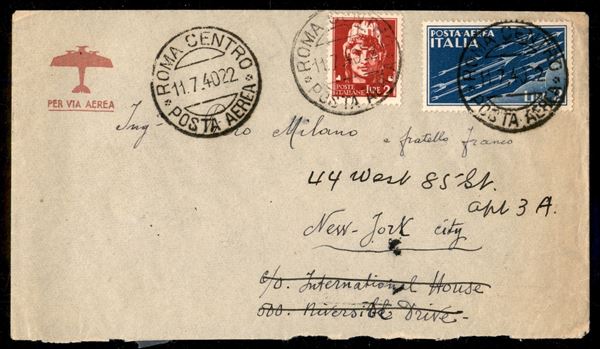 ROMA CENTRO
11.7.40 22
* POSTA AEREA *
ROMA
11.7.4
* POSTA A
POSTE ITALIANE LIRE 2
POSTA AEREA
ITALIA
LIRE 2
11.7.40 22
POSTA AEREA
PER VIA AEREA
Ing. Milano e fratello Franco
44 West 85 St.
apt 3 A.
New-York city
c/o. International House
500. Riverside Drive.-